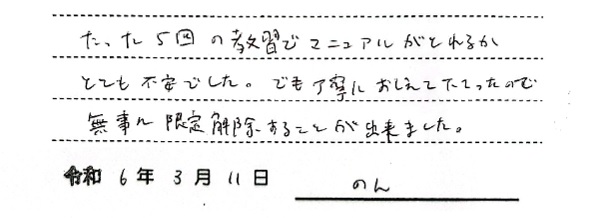 たった5回の教習でマニュアルがとれるか
とても不安でした。でも丁寧におしえて下さったので
無事に限定解除することが出来ました。
令和 6 年 3 月 11 日 のん